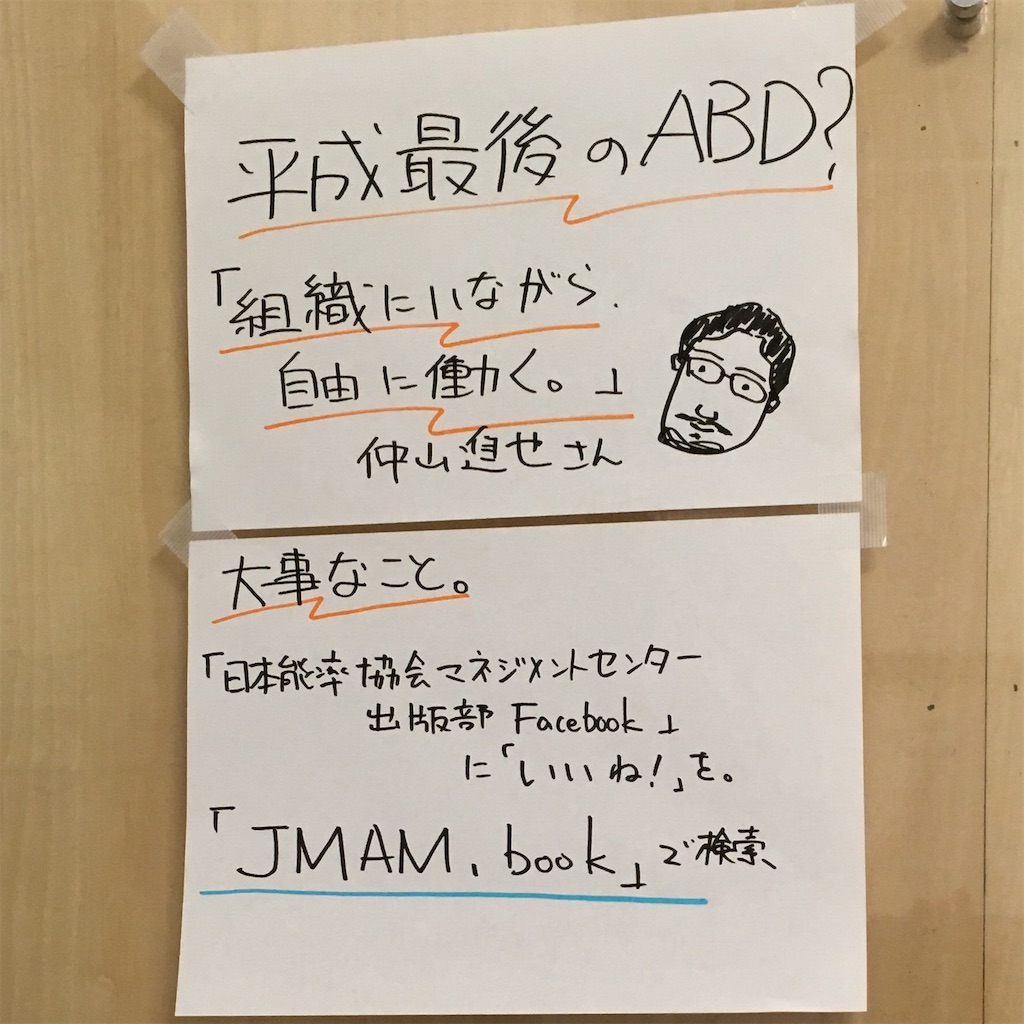 平成最後のABD?
「組織にいながら、
自由に働く。」
仲山進也さん
大事なこと。
「日本能率協会マネジメントセンター
出版部 Facebook」
に「いいね!」を。
「JMAM.book」で検索